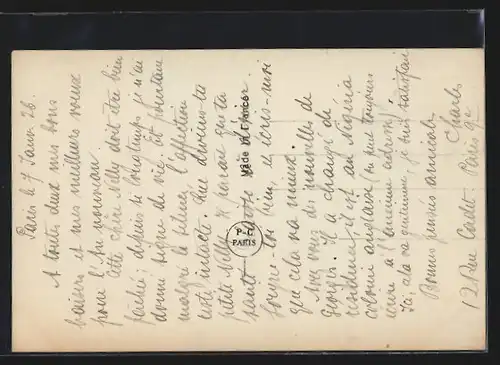 Paris le 7 Janv 26.
A toutes deux mes bons
baisers et mes meilleurs voeux
pour l'An nouveau.
Cette chère Nelly doit être bien
fachée; depuis si longtemps je n'ai
donné signe de vie. Et pourtant
malgré le silence l'affection
est intacte. Que deviens-tu
petite Nelly. Il parait que ta
santé
soigne-toi bien, et écris-moi
que cela va mieux.
Avez vous des nouvelles de
Georges. Il a changé de
résidence, il est au Nigeria
colonie anglaise. Tu peux toujours
écrire à l'ancienne adresse.
Ici, cela va et je suis satisfait
Bonnes pensées amicales.
Charles
12 Rue Cadet. Paris 9e
Made in France
P-C
PARIS